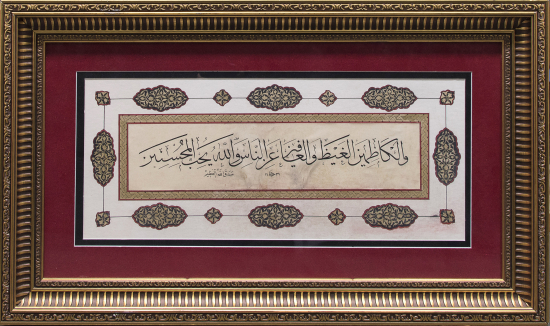 والكاظمين الغيظ والعافين عن الناس والله يحب المحسنين